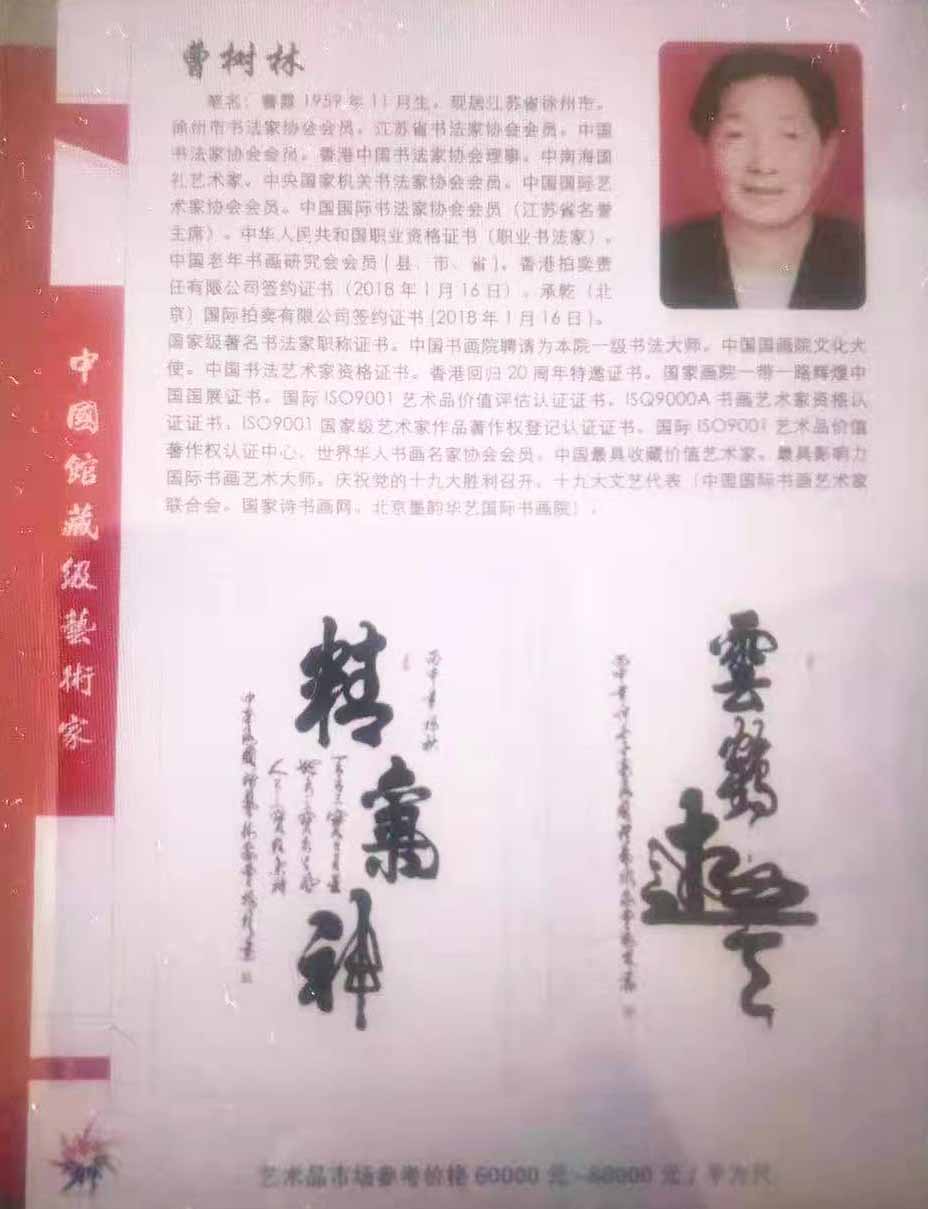 曹树林
笔名：曹霖 1959 年 11 月生，现居江苏省徐州市。
徐州市书法家协会会员，江苏省书法家协会会员，中国
书法家协会会员，香港中国书法家协会理事，中南海国
礼艺术家，中央国家机关书法家协会会员，中国国际艺
术家协会会员。中国国际书法家协会会员（江苏省名誉
主席）。中华人民共和国职业资格证书（职业书法家），
中国老年书画研究会会员(县、市、省)。香港拍卖责
任有限公司签约证书（2018 年 1 月 16 日），承乾（北
京）国际拍卖有限公司签约证书(2018 年 1 月 16 日)。
国家级著名书法家职称证书。中国书画院聘请为本院一级书法大师。中国国画院文化大
使。中国书法艺术家资格证书。香港回归 20 周年特邀证书。国家画院一带一路辉煌中
国国展证书。国际 ISO9001 艺术品价值评估认证证书，ISQ9000A 书画艺术家资格认
证证书，ISO9001 国家级艺术家作品著作权登记认证证书。国际 ISO9001 艺术品价值
著作权认证中心，世界华人书画名家协会会员，中国最具收藏价值艺术家。最具影响力
国际书画艺术大师。庆祝党的十九大胜利召开，十九大文艺代表（中国国际书画艺术家
联合会。国家诗书画网。北京墨韵华艺国际书画院），
中國館藏級藝術家
精氣神
雲鶴
艺术品市场参考价格 60000 元-80000 元 / 平方尺